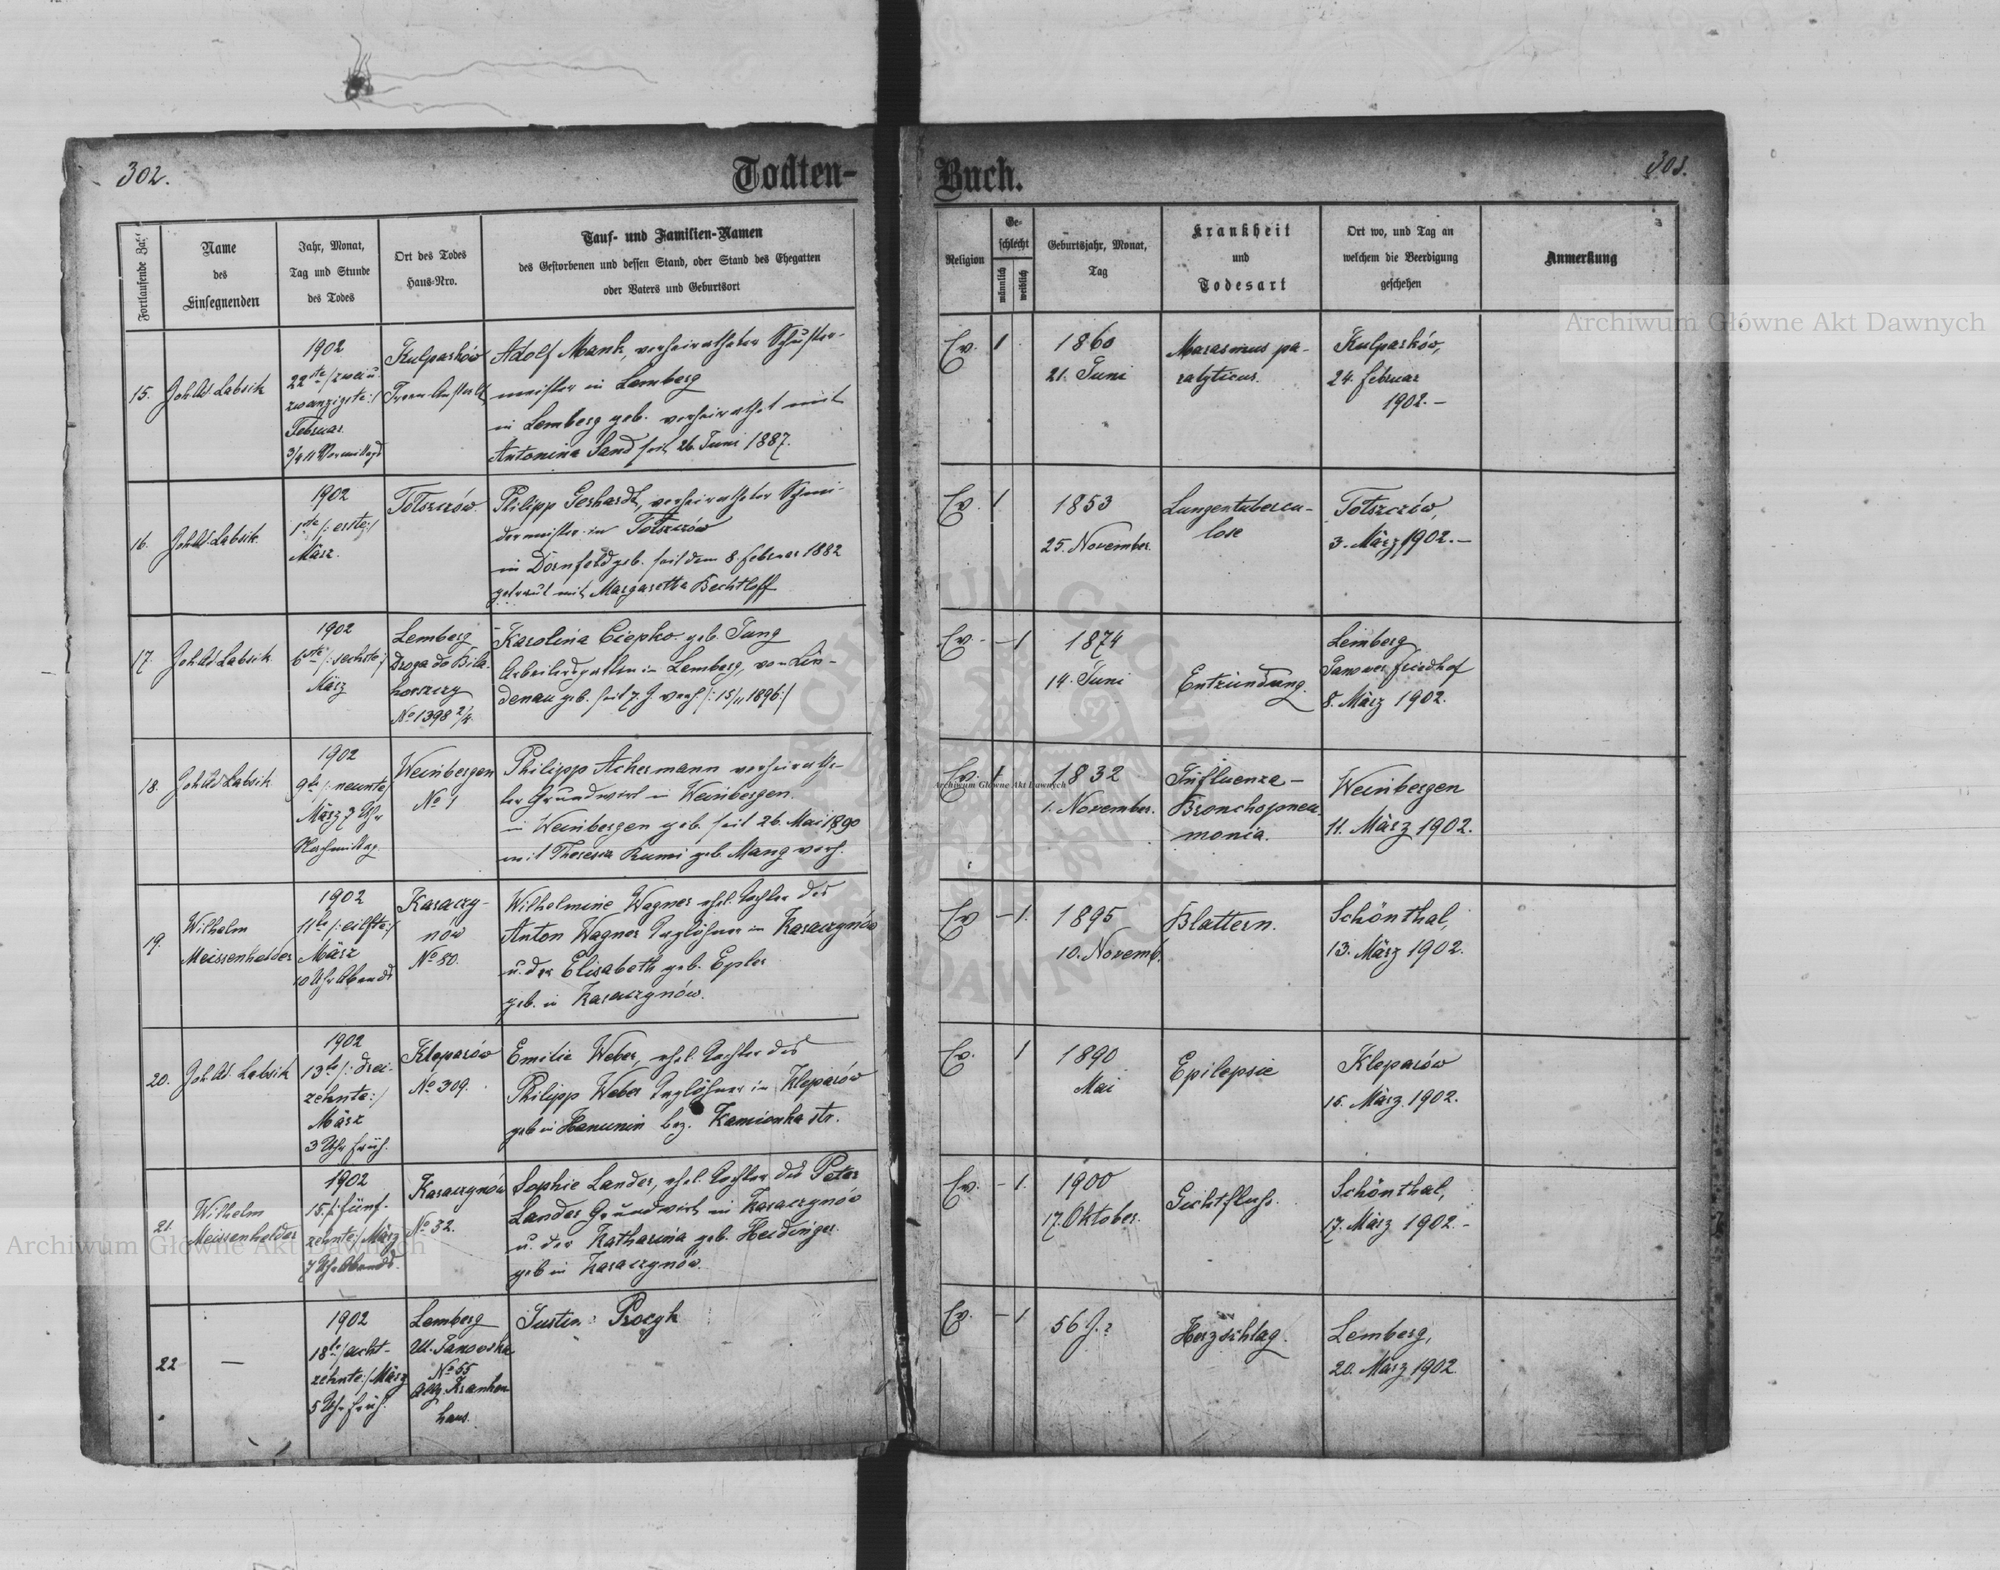 302.
Todten-
Fortlaufende Zahl
Name
des
Einsegnenden
Jahr, Monat,
Tag und Stunde
des Todes
Ort des Todes
Haus-Nro.
Tauf- und Familien-Namen
des Gestorbenen und dessen Stand, oder Stand des Ehegatten
oder Vaters und Geburtsort
15.
Labsik
1902
22te /: zwei u.
zwanzigste :/
Februar
3/4 11 Vormittags
Kulparków
Irren Anstalt
Adolf Mank, verheiratheter Schuster-
meister in Lemberg
in Lemberg geb. verheirathet mit
Antonina Sand seit 26. Juni 1887.
16.
Labsik.
1902
1te /: erste :/
März.
Totszczów
Philipp Gerhardt, verheiratheter Schnei-
dermeister in Totszczów
in Dornfeld geb. seit dem 8. Februar 1882
getraut mit Margaretha Bechtloff
17.
Labsik.
1902
6te /: sechste :/
März
Lemberg
Droga do Bila-
horszczy
No 1398 2/4
Karolina Ciepko geb. Jung
Arbeitersgattin in Lemberg, von Lin-
denau geb. seit 7. J. verh. /: 15/11 1896 :/
18.
Labsik.
1902
9te /: neunte
März 7 Uhr
Nachmittag
Weinbergen
No 1
Philipp Ackermann verheirathe-
ter Grundwirt in Weinbergen.
in Weinbergen geb. seit 26. Mai 1890
mit Theresia Rumi geb. Mang verh.
19.
Wilhelm
Meissenhelder
1902
11te /: eilfte :/
März
10 Uhr Abends
Karaczy-
nów
No 80.
Wilhelmine Wagner ehel. Tochter des
Anton Wagner Taglöhner in Karaczynów
u. der Elisabeth geb. Epler
geb. in Karaczynów.
20.
Labsik
1902
13te /: drei-
zehnte :/
März
3 Uhr früh.
Kleparów
No 309.
Emilie Weber, ehel. Tochter des
Philipp Weber Taglöhner in Kleparów
geb in Hanunin bez. Kamionka str.
21.
Wilhelm
Meissenhelder
1902
15 /: fünf-
zehnte :/ März
7 Uhr Abends.
Karaczynów
No 32.
Sophie Lander, ehel. Tochter des Peter
Lander Grundwirt in Karaczynów
u. der Katharina geb. Heidinger
geb in Karaczynów.
22
—
1902
18te /: acht-
zehnte :/ März
5 Uhr früh.
Lemberg
Ul. Janowska
No 55
Allg. Kranken
haus.
Justin Procyk
Buch.
303.
Religion
Ge-
schlecht
männlich
weiblich
Geburtsjahr, Monat,
Tag
Krankheit
und
Todesart
Ort wo, und Tag an
welchem die Beerdigung
geschehen
Anmerkung
Ev.
1
1860
21. Juni
Marasmus pa-
ralyticus.
Kulparków,
24. Februar
1902. –
Ev.
1
1853
25. November.
Lungentubercu-
lose
Totszczów,
3. März 1902. –
Ev.
– 1
1874
14. Juni
Entzündung.
Lemberg
Janower Friedhof
8. März 1902.
Ev.
1
1832
1. November.
Influenza –
Bronchopneu-
monia.
Weinbergen
11. März 1902.
Ev
– 1.
1895
10. Novemb.
Blattern.
Schönthal,
13. März 1902.
Ev.
1
1890
Mai
Epilepsie
Kleparów
15. März 1902.
Ev.
– 1.
1900
17. Oktober.
Schönthal,
17. März 1902. –
Ev.
– 1.
56 J.
Herzschlag.
Lemberg,
20. März 1902
Archiwum Główne Akt Dawnych
Archiwum Główne Akt Dawnych
Archiwum Główne Akt Dawnych